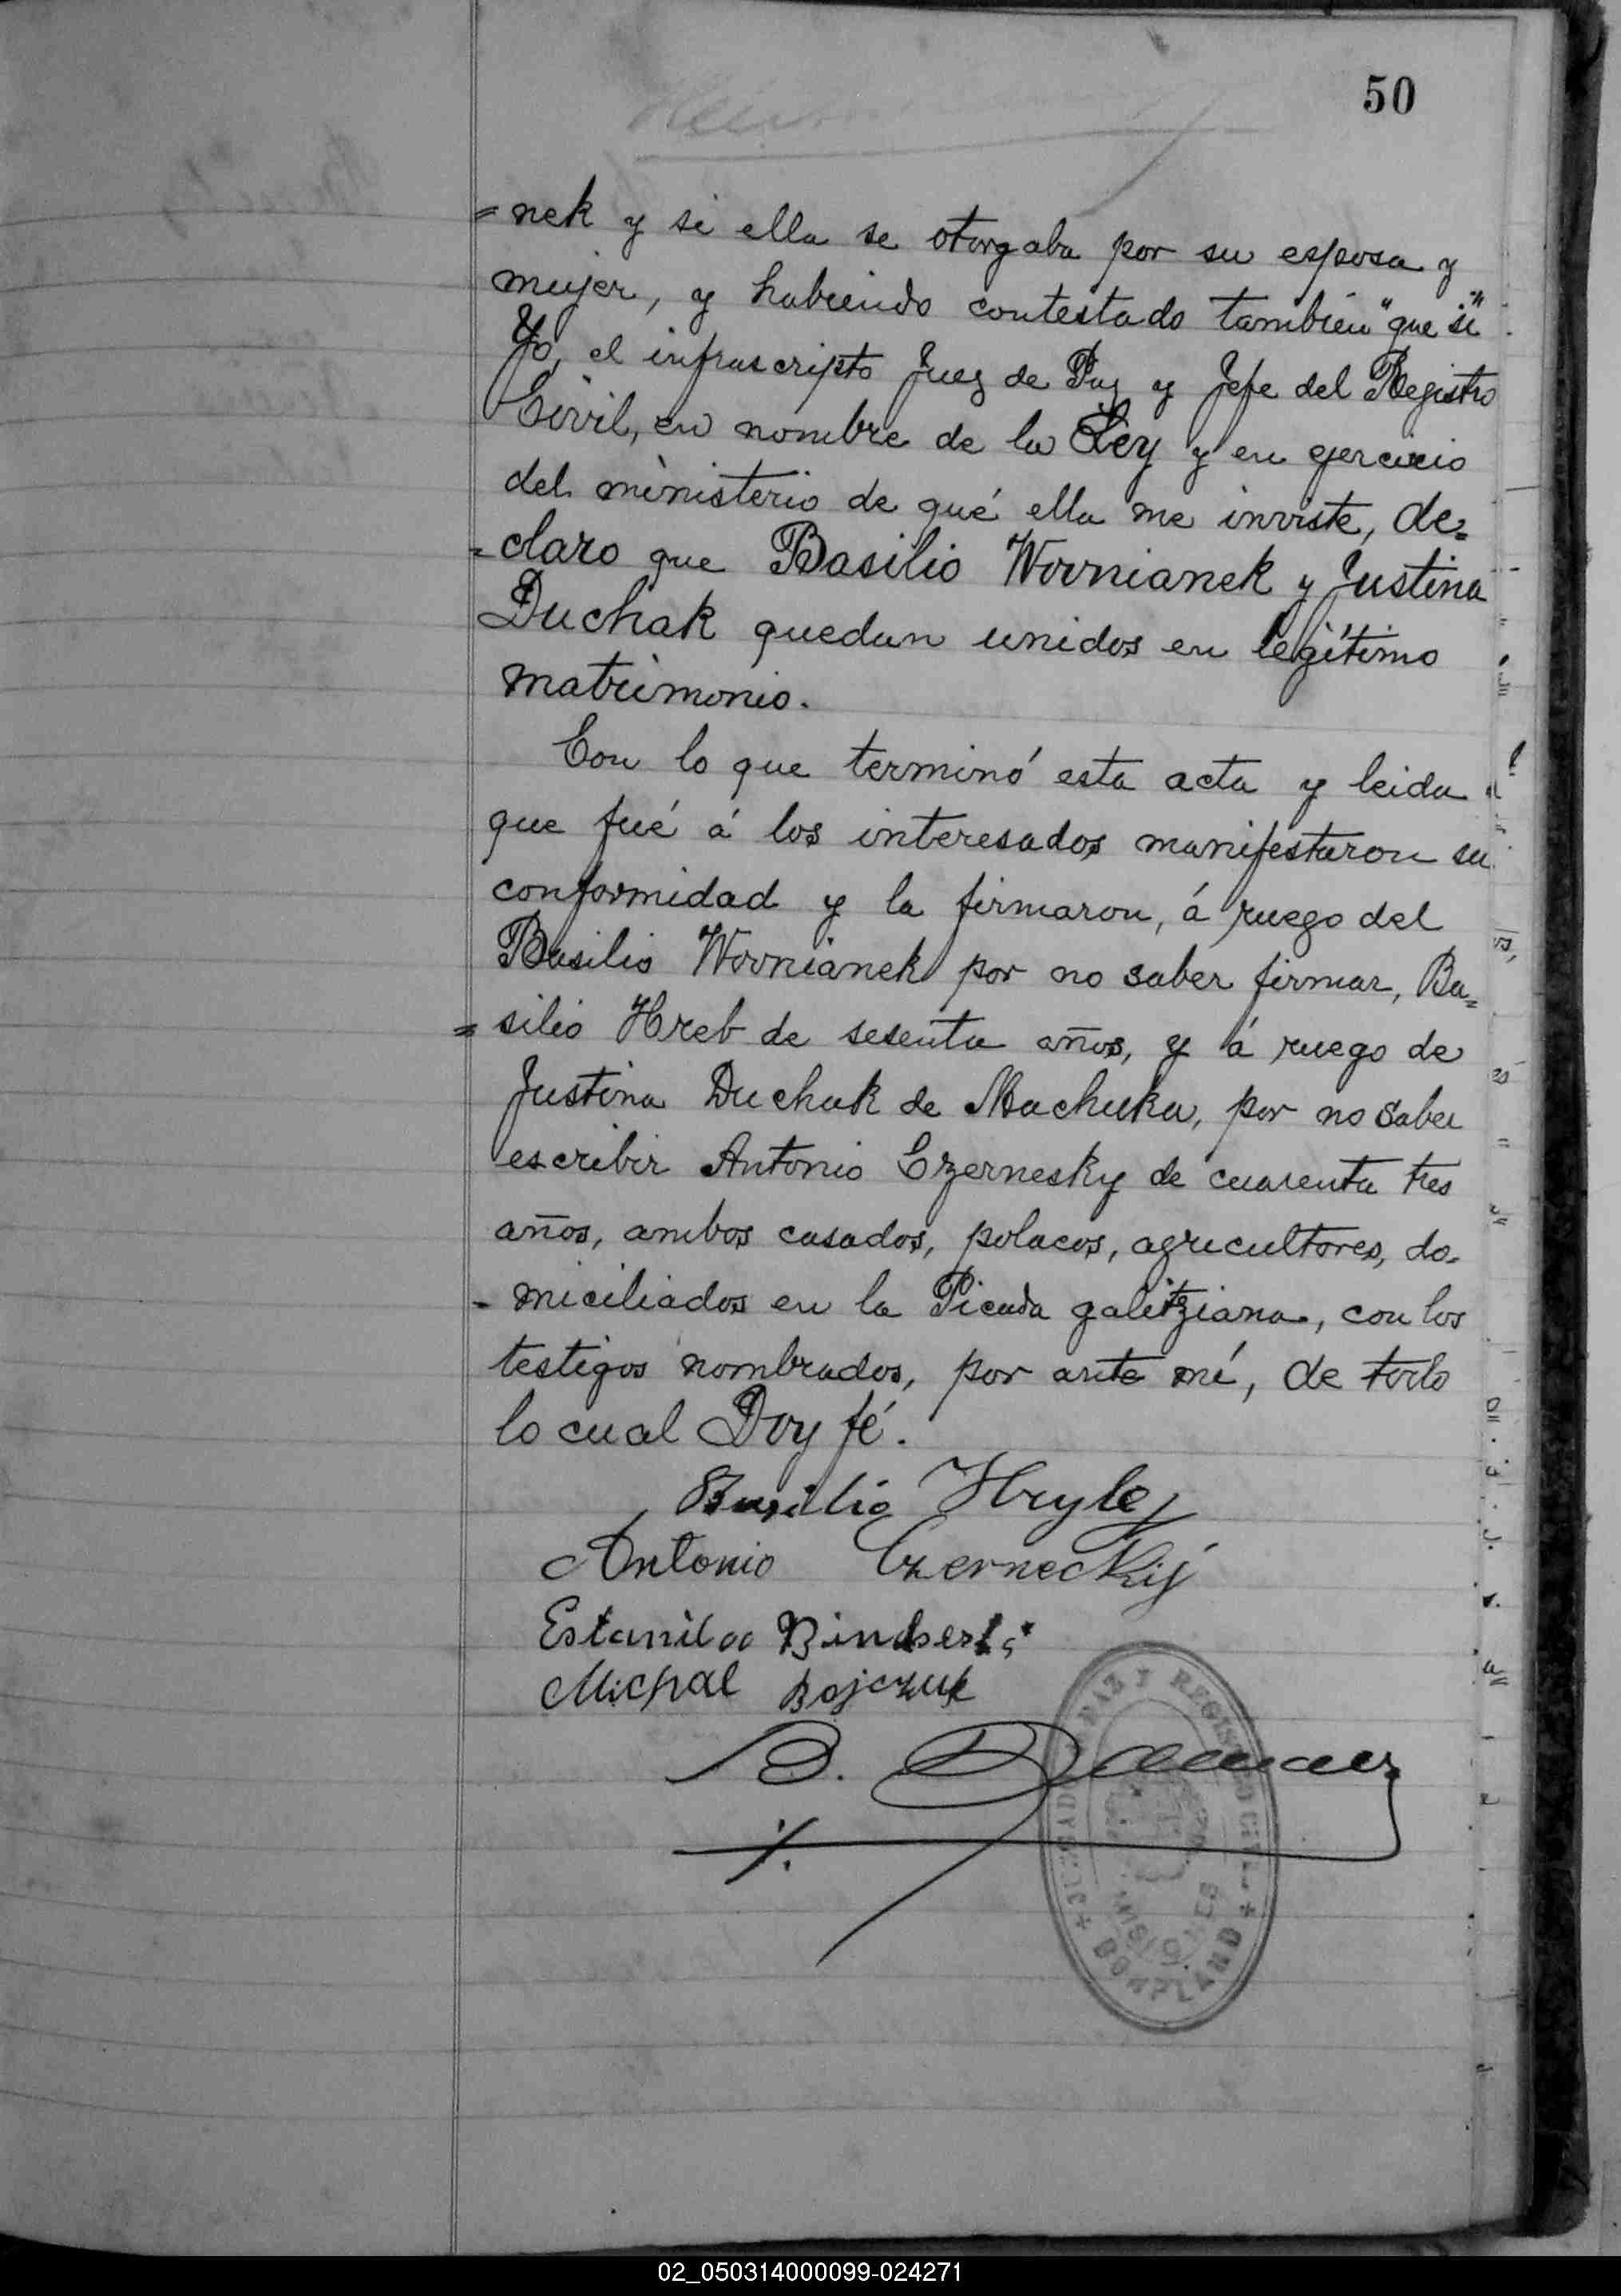 50
=nek y si ella se otorgaba por su esposa y
mujer, y habiendo contestado tambien "que si"
Yo, el infrascripto Juez de Paz y Jefe del Registro
Civil, en nombre de la Ley y en ejercicio
del ministerio de qué ella me inviste, de=
=claro que Basilio Wovnianek y Justina
Duchak quedan unidos en legítimo
matrimonio.
Con lo que terminó esta acta y leida
que fué á los interesados manifestaron su
conformidad y la firmaron, á ruego del
Basilio Wovnianek por no saber firmar, Ba=
=silio Hreb de sesenta años, y á ruego de
Justina Duchak de Machuka, por no saber
escribir Antonio Czernesky de cuarenta tres
años, ambos casados, polacos, agricultores, do-
-miciliados en la Picada galitziana, con los
testigos nombrados, por ante mi, de todo
lo cual Doy fé.
Basilio
Antonio Czerneckij
Michal Bojczuk
JUZGADO DE PAZ Y REGISTRO CIVIL
MISIONES
BOMPLAND
02_050314000099-024271